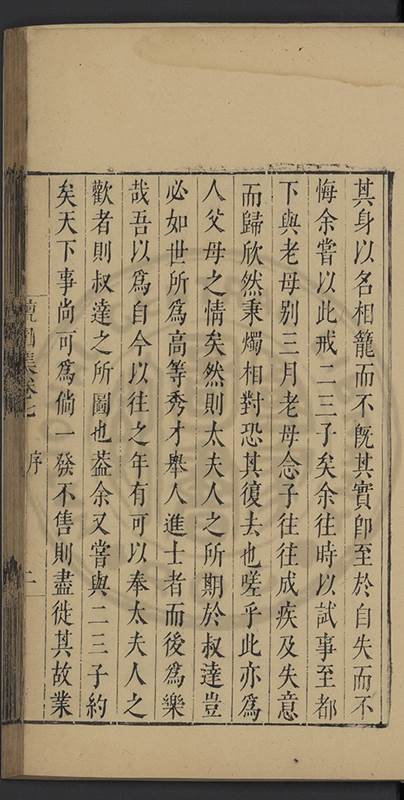 其身以名相籠而不旣其實卽至於自失而不
悔余嘗以此戒二三子矣余往時以試事至都
下與老母别三月老母念子往往成疾及失意
而歸欣然秉燭相對恐其復去也嗟乎此亦爲
人父母之情矣然則太夫人之所期於叔達豈
必如世所爲高等秀才舉人進士者而後爲樂
哉吾以爲自今以往之年有可以奉太夫人之
歡者則叔達之所圖也葢余又嘗與二三子約
矣天下事尚可爲倘一發不售則盡徙其故業
集卷七 序 二